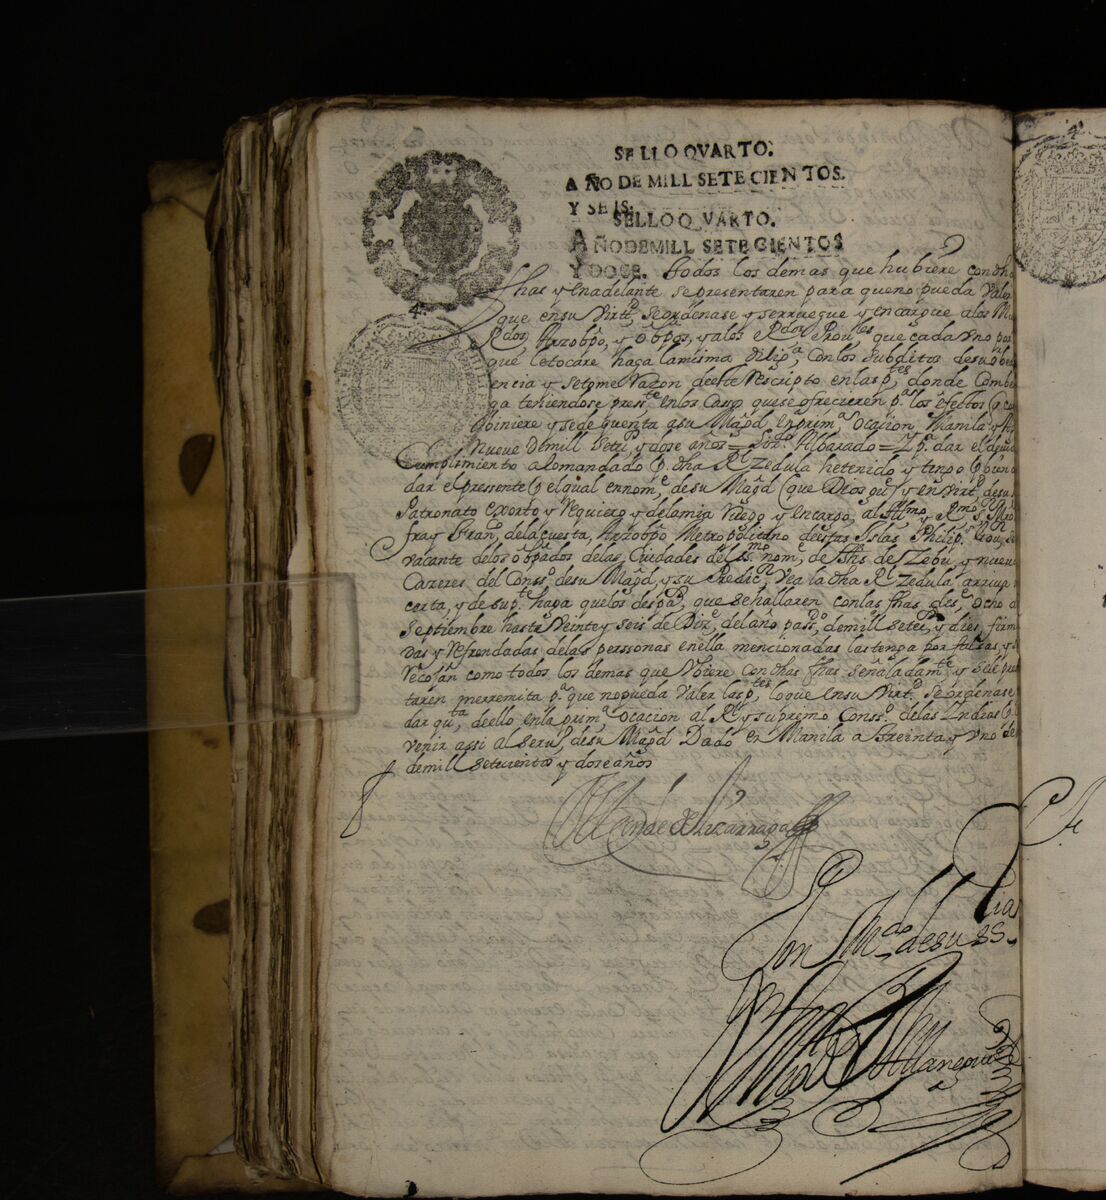 SELLO QVARTO.
AÑO DE MILL SETECIENTOS.
Y SEIS.
SELLO QVARTO.
AÑO DE MILL SETECIENTOS
Y DOCE. todos los demas que hubiere con dhas
fhas y en adelante se presentaren para que no pueda Valer
que en su Virtd. se ordenase y se rruegue y encargue a los
Rdos Arzobpo, y Obpos, y a los Rdos Proules que cada Vno por
que le tocare haga la misma dilipa, con los subditos de su obe
encia y se tome Razon de este Rescripto en las ptes donde Combe
ga teniendose preste en los Casos que se ofrecieren pa los efectos
combiniere y se de quenta a su Magd en prima ocacion, Manila y
Nueve de mill Setesy dose años = Albarado = Y pa dar el deuido
Cumplimiento a lo mandado p. dha Rl Zedula he tenido y tengo p bien
dar el pressente p el qual en nome de su Magd (que Dios gue) y en Virtd de su
Patronato exorto y Requiero y de la mia Ruego y encargo, al Illmo y Rmo Sr Mro
fray Franco de la Cuesta, Arzobpo Metropolitano de estas Islas Philipas
vacante de los obpados de las Ciudades del ssmo nome de Jhs de Zebu, y nueva
Cazeres del Consso de su Magd, y su Predicr, Vea la dha Rl Zedula, arriua
certa, y de supte haga que los despas, que se hallaren con las fhas des, ocho de
Septiembre hasta Veinte y seis de Dize, del año passdo de mill sete y dies, firma
das y Refrendadas de las perssonas en ella mencionadas las tenga por falzas, y
Recojan como todos los demas que Vbiere con dhas fhas señaladamte y se le pre
taren me rremita pa que no pueda Valer las ptes lo que en su Virtd se ordenase
dar qta de ello en la prima ocacion al Rl y supremo Consso de las Indias
venir assi al seruo de su Magd Dado en Manila a treinta y Vno de
de mill setecientos y dose años
El Conde de Lizarraga
Por Mdo de su Sria